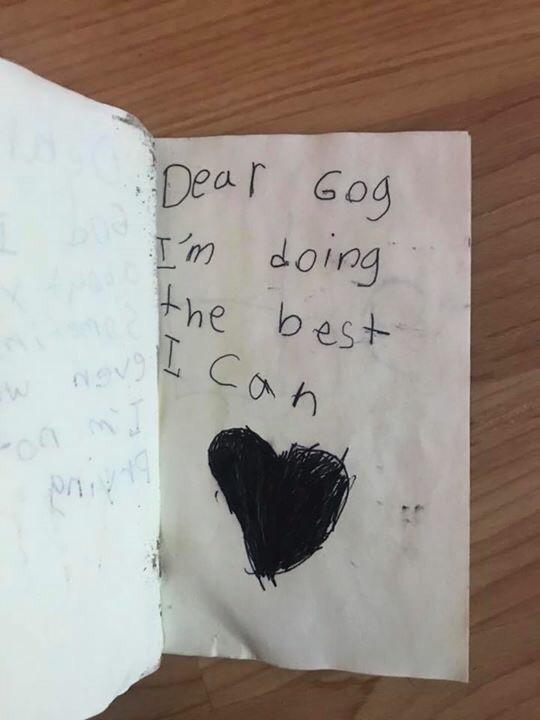 Dear Gog
I'm doing
the best
I can